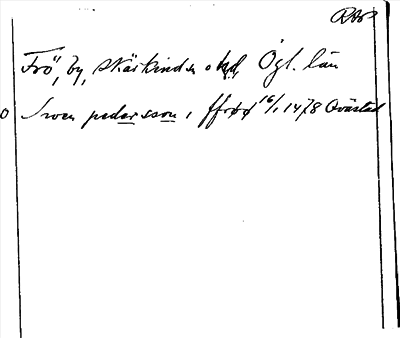 RAp
Frö, by, Skärkinds sn o hd Ögl. län
o Swen pedersson i ffröö 16/1 1478 Qvarstad